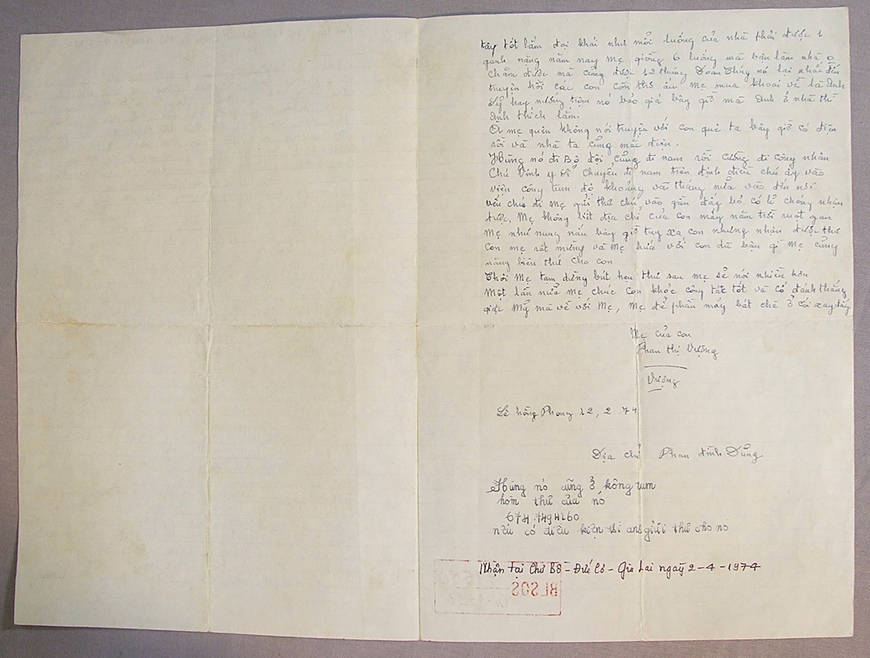 tây tốt lắm đại khái như mỗi luống của nhà phải được 1
gánh nặng năm nay mẹ giồng 6 luống mà bán làm nhà
chăm được mà cũng được 12 thúng Đoan Thúy nó lại nhắc đến
truyện hồi các con còn thơ ấu mẹ mua khoai về là anh
hay nướng trộm nó bảo giá bây giờ mà anh ở nhà thì
anh thích lắm.
mẹ quên không nói truyện với con quê ta bây giờ có điện
rồi và nhà ta cũng mắc điện.
Hùng nó đi Bộ đội cũng đi nam rồi cường đi công nhân
Chú Vinh y sĩ chuyến đi nam trên định điều chú ấy vào
viện công tum độ khoảng vài tháng nữa vào đến nơi
nếu chú đi mẹ gửi thư chú vào gần đấy bỏ có lẽ chóng nhận
được. Mẹ không biết địa chỉ của con mấy năm trời ruột gan
mẹ như nung nấu bây giờ tuy xa con nhưng nhận được thư
con mẹ rất mừng và mẹ hứa với con dù bận gì mẹ cũng
năng biên thư cho con
Thôi mẹ tạm dừng bút hẹn thư sau mẹ sẽ nói nhiều hơn
Một lần nữa mẹ chúc con khỏe công tác tốt và cố đánh thắng
giặc Mỹ mà về với mẹ, mẹ để phần mấy bát chè ở cối xay đấy
Mẹ của con
Phan thị Vượng
Vượng
Lê hồng Phong 12, 2 74
Địa chỉ Phan đình Dũng
Hùng nó cũng ở kông tum
hòm thư của nó
674.749H160
nếu có điều kiện thì anh gửi thư cho nó
Nhận Tại Chư Bồ - Đức Cơ - Gia Lai ngày 2-4-1974